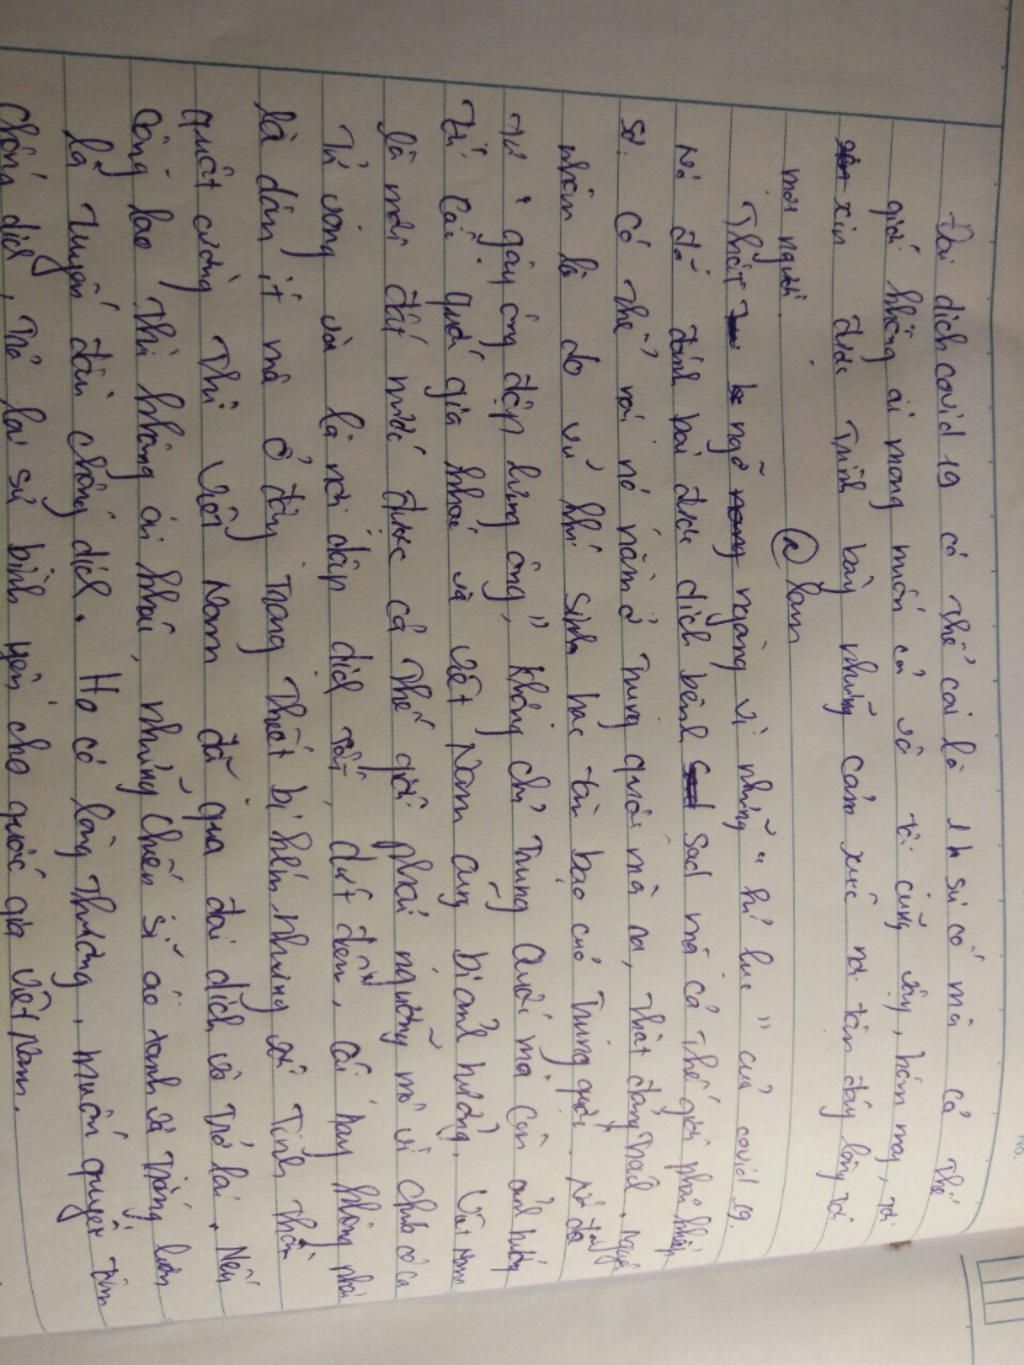 Đai dich covid 19 có thể coi là 1 sư cố mà cả thế
giới không ai mong muốn cả và tôi cũng vậy, hôm nay, tôi
xin đưc trình bày những cảm xúc nơi tận đáy lòng tới
mọi người.
a làm
Thật ngỡ ngàng vì những "kí lục" của covid 19.
Nó đã đánh bại được dịch bệnh mà cả thế giới phải khiếp
sợ. Có thể nói nó nằm ở Trung quốc mà ra, thật đáng trách. Nguyên
nhân là do vũ khí sinh học tàn bạo của Trung quốc. Nó đã
từ "gậy ông đập lưng ông", không chỉ Trung Quốc mà còn ảnh hưởng
tới các quốc gia khác và Việt Nam cũng bị ảnh hưởng. Việt Nam
là một đất nước được cả thế giới phải ngưỡng mộ vì chưa có ca
tử vong và là nơi dập dịch tốt, dứt điểm. Cái hay không phải
là dân ít mà ở đây trang thiết bị hiếm nhưng tinh thần
quật cường thì Việt Nam đã qua đại dịch và trở lại. Nếu
công lao thì không ai khác, những chiến sĩ áo xanh và trắng luôn
là tuyến đầu chống dịch. Họ có lòng thương, muốn quyết tâm
chống dịch, trả lại sự bình yên cho quốc gia Việt Nam.